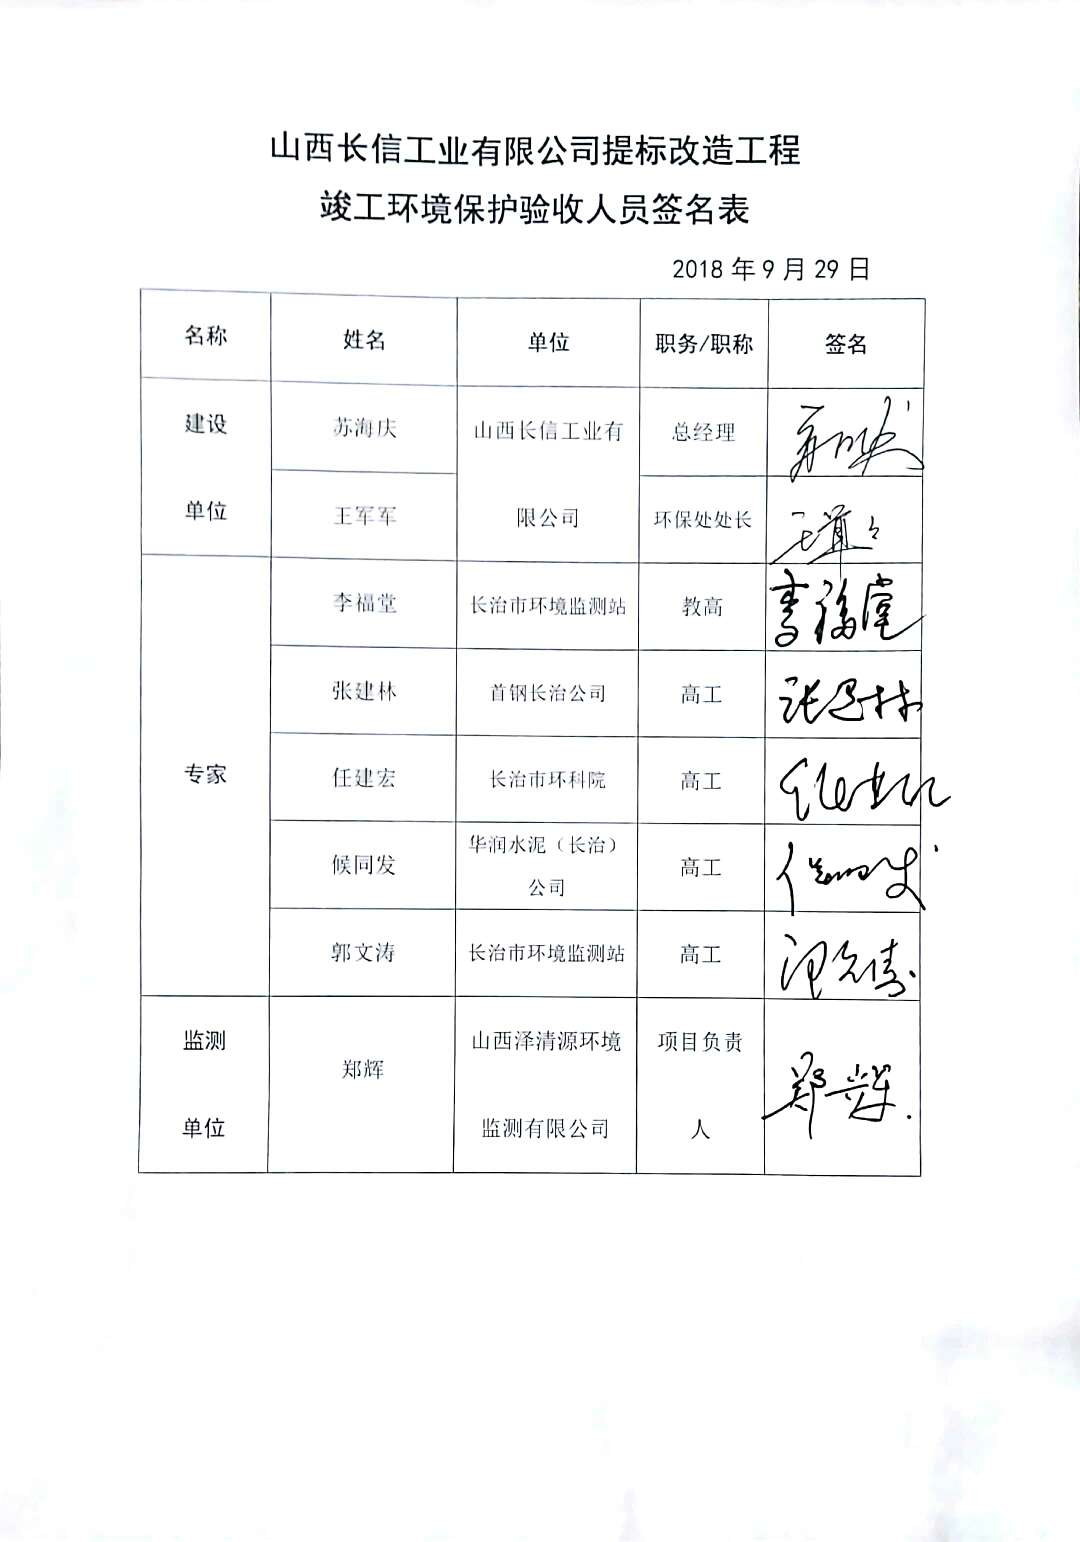 山西长信工业有限公司提标改造工程
竣工环境保护验收人员签名表
2018 年 9 月 29 日
名称 姓名 单位 职务/职称 签名
建设 苏海庆 山西长信工业有 总经理
单位 王军军 限公司 环保处处长 王军々
李福堂 长治市环境监测站 教高 李福堂
张建林 首钢长治公司 高工 张建林
专家 任建宏 长治市环科院 高工
候同发 华润水泥（长治） 高工
公司
郭文涛 长治市环境监测站 高工
监测 山西泽清源环境 项目负责
郑辉 郑辉
单位 监测有限公司 人